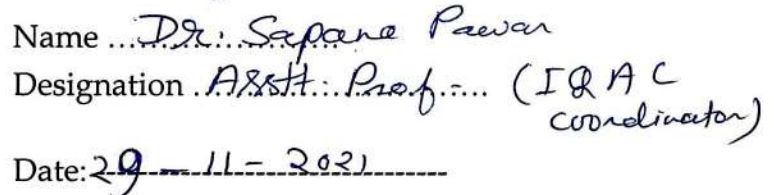 Name ... Dr. Sapana Pawar
Designation . Asstt. Prof. ... (IQAC
coordinator)
Date: 29 - 11 - 2021